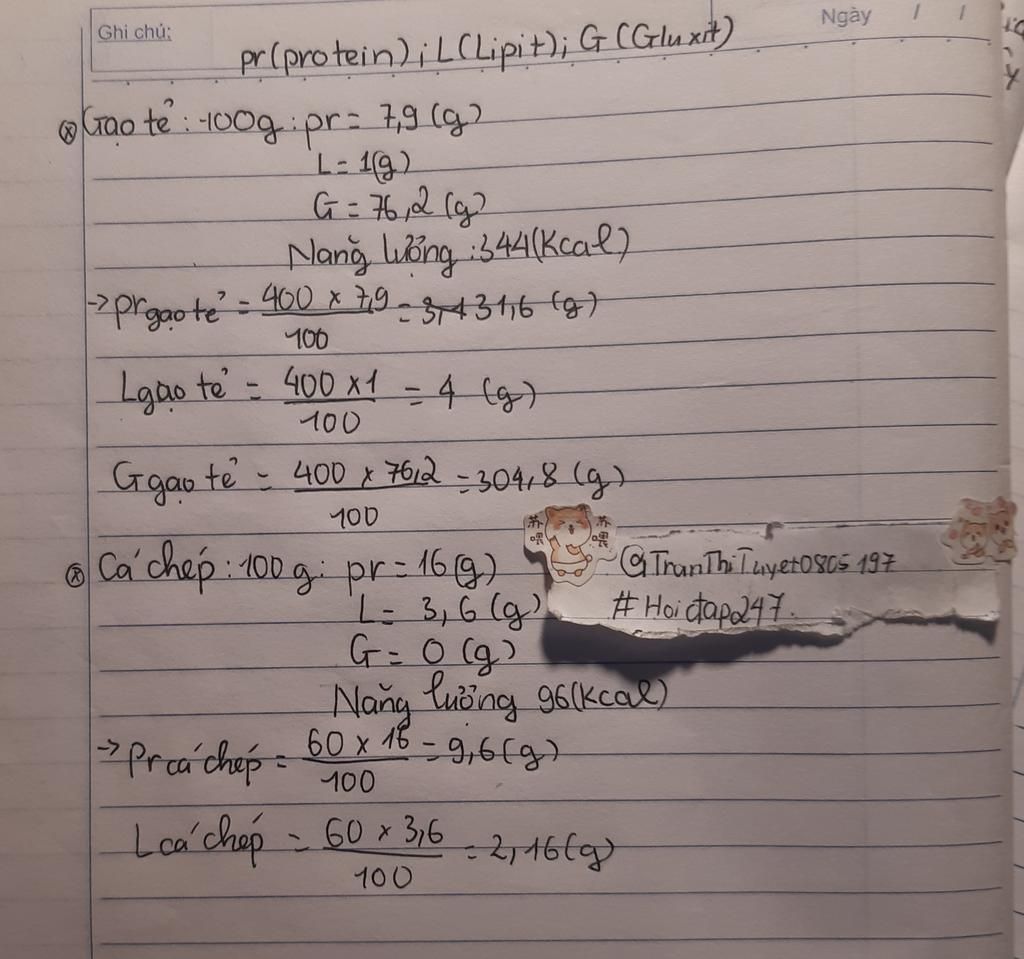 Ghi chú:
Ngày / /
pr(protein); L(Lipit); G(Gluxit)
⊗ Gạo tẻ: 100g: pr = 7,9 (g)
L = 1(g)
G = 76,2 (g)
Năng lưởng : 344(Kcal)
→ pr gạo tẻ = 400 x 7,9 / 100 = 31,6 (g)
L gạo tẻ = 400 x 1 / 100 = 4 (g)
G gạo tẻ = 400 x 76,2 / 100 = 304,8 (g)
⊗ Cá chép: 100 g: pr = 16 (g)
L = 3,6 (g)
G = 0 (g)
Năng lưởng 96(Kcal)
→ Pr cá chép = 60 x 16 / 100 = 9,6 (g)
L cá chép = 60 x 3,6 / 100 = 2,16 (g)
苏喂
苏喂
@TranThiTuyet0805197
#Hoiđap247.